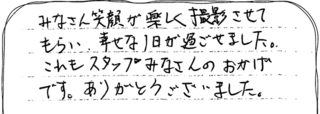 みなさん笑顔が楽しく撮影させて
もらい、幸せな1日が過ごせました。
これもスタッフみなさんのおかげ
です。ありがとうございました。